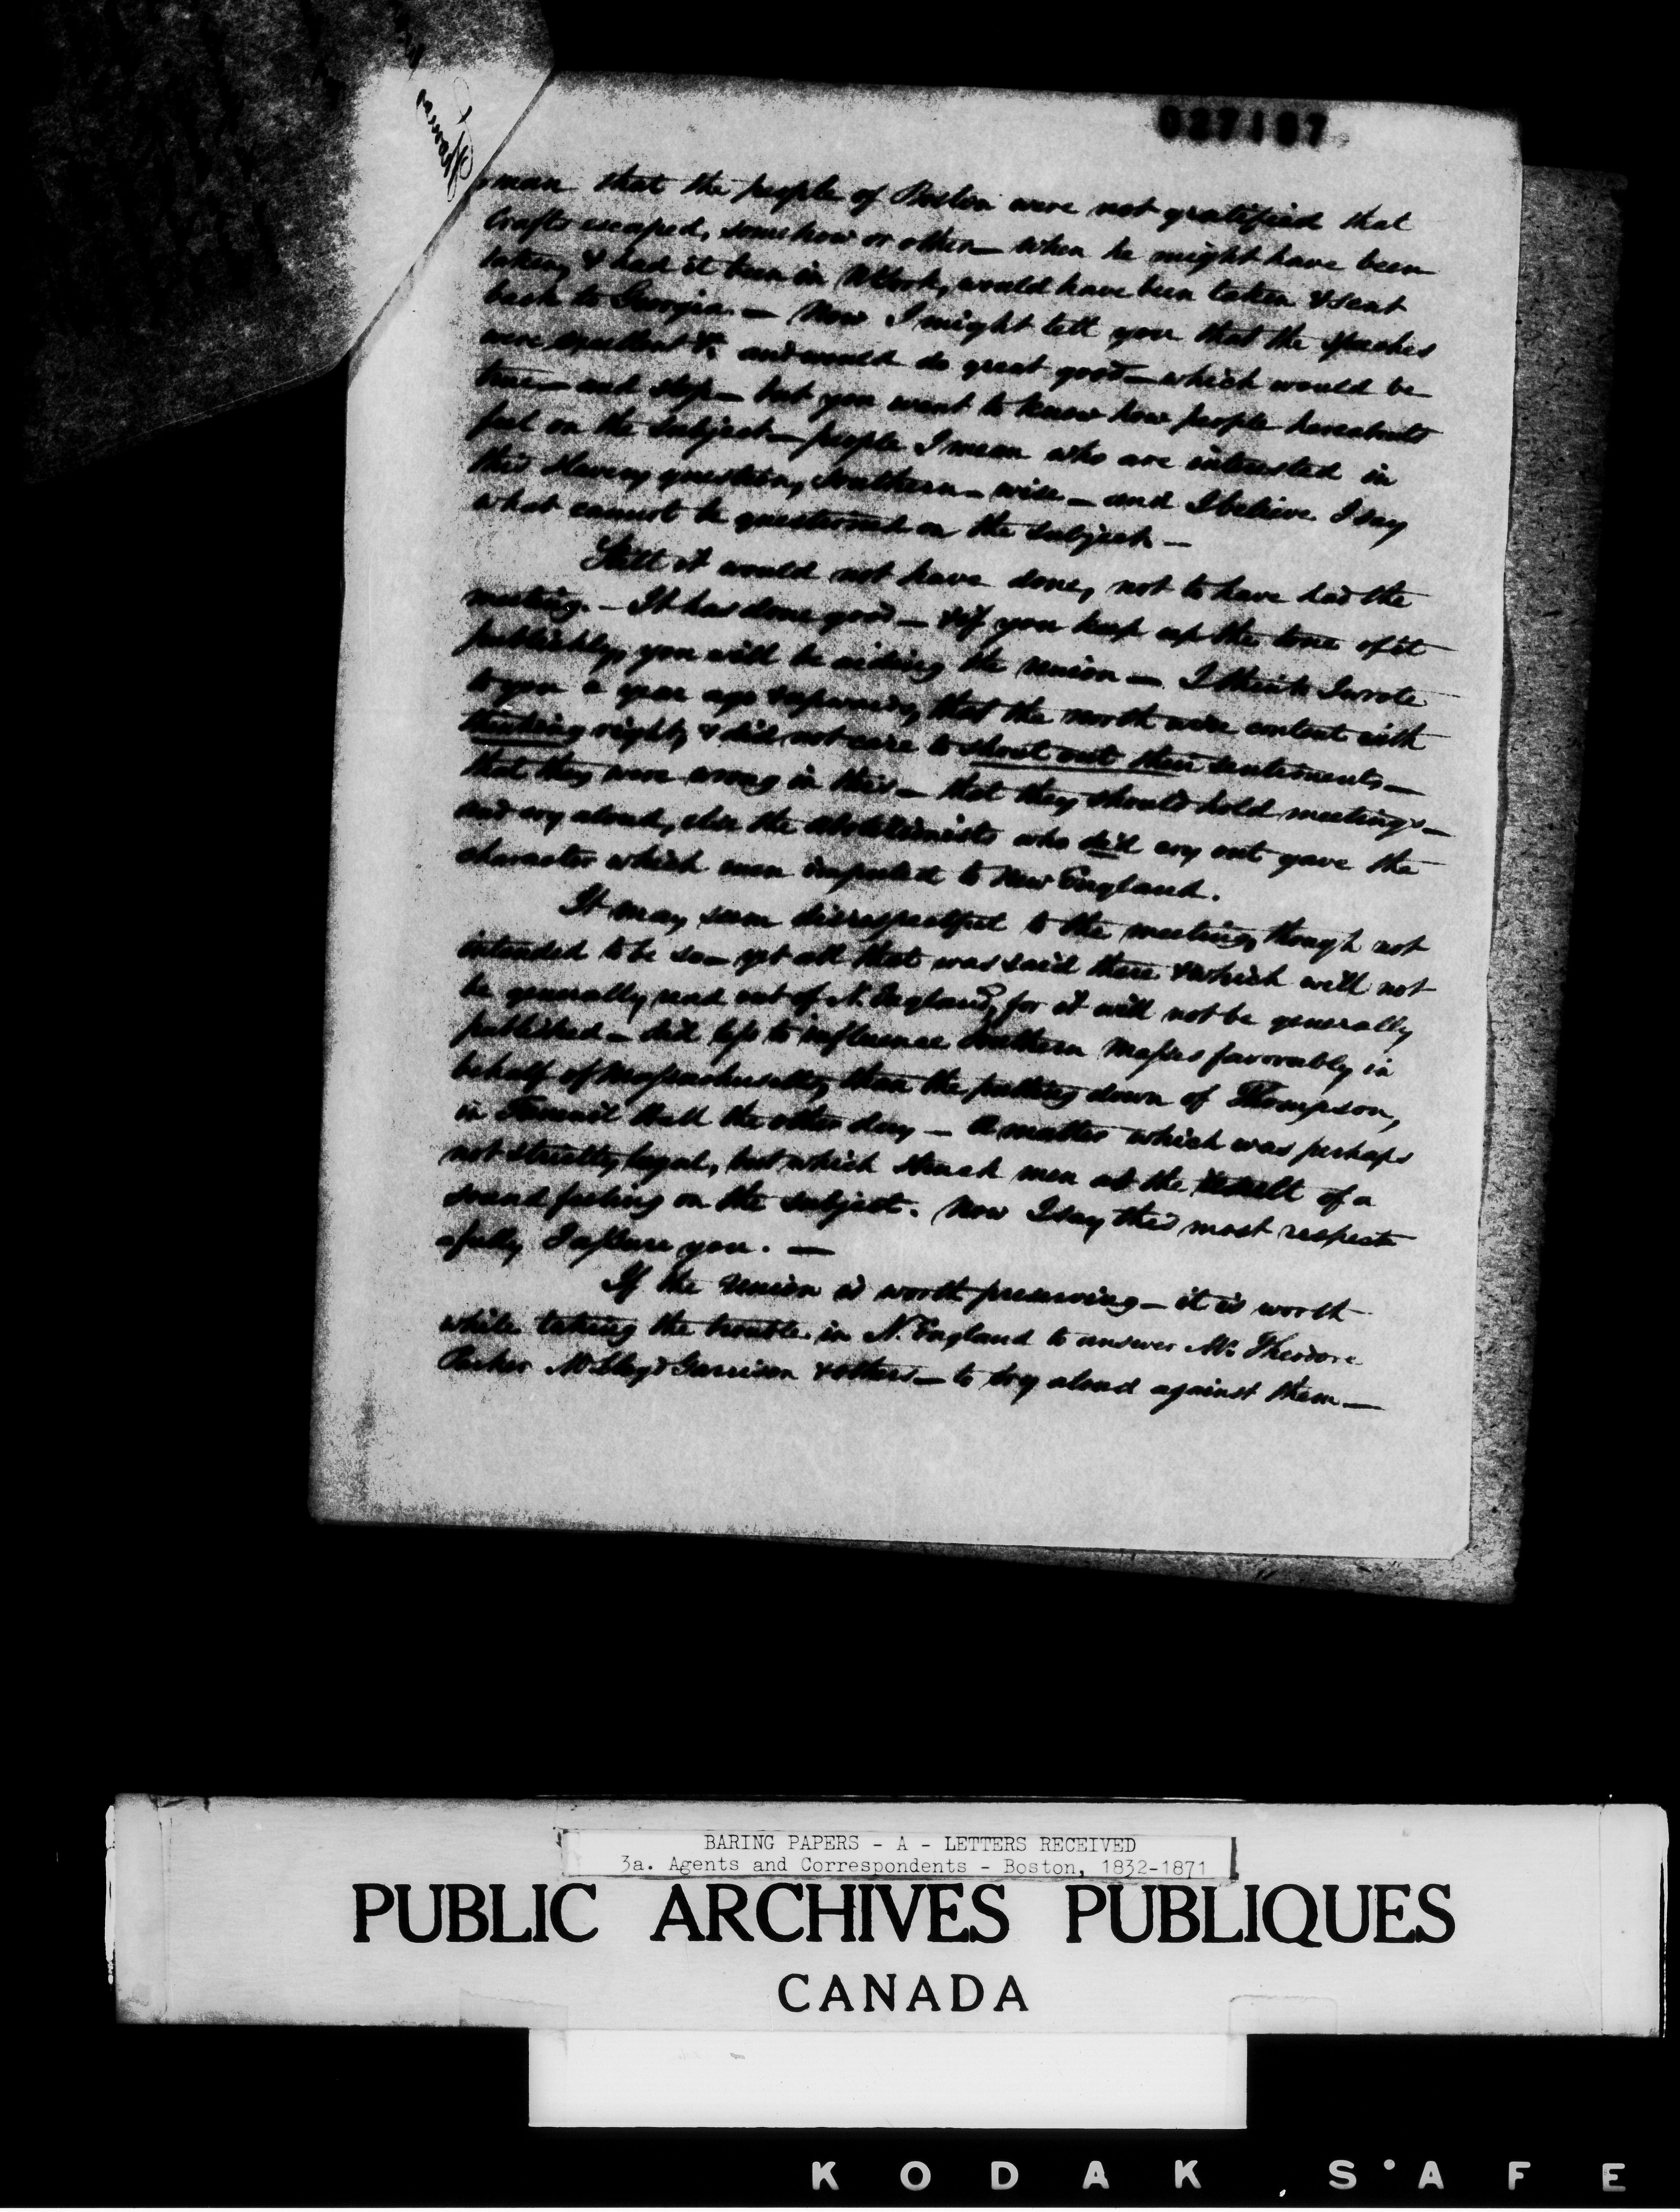 027107
man that the people of Boston were not gratified that
Crafts escaped, somehow or other — when he might have been
taken, & had it been in NYork, would have been taken & sent
back to Georgia. — Now I might tell you that the speeches
were excellent &c and would do great good — which would be
true — and stop — but you want to know how people hereabouts
feel on the subject — people I mean who are interested in
this Slavery question, Southern-wise — and I believe I say
what cannot be questioned on the subject. —
Still it would not have done, not to have had the
meeting. — It has done good — & if you keep up the tone of it
publickly, you will be aiding the Union — I think I wrote
to you a year ago & upwards, that the north were content with
thinking right, & did not care to shout out their sentiments —
that they were wrong in this — that they should hold meetings —
and cry aloud, else the abolitionists who did cry out gave the
character which men imputed to New England.
It may seem disrespectful to the meeting, though not
intended to be so — yet all that was said there & which will not
be generally read out of N. England, for it will not be generally
published — did less to influence Southern masses favorably in
behalf of Massachusetts, than the putting down of Thompson,
in Faneuil Hall the other day — a matter which was perhaps
not strictly legal, but which struck men as the result of a
sound feeling on the subject. Now I say this most respect
-fully I assure you. —
If the Union is worth preserving — it is worth
while taking the trouble in N. England to answer Mr Theodore
Parker Mr Lloyd Garrison & others — to cry aloud against them —
BARING PAPERS - A - LETTERS RECEIVED
3a. Agents and Correspondents - Boston, 1832-1871
PUBLIC ARCHIVES PUBLIQUES
CANADA
KODAK SAFE